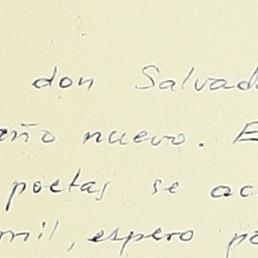 don Salvad
año nuevo. E
poetas se ac
mil, espero po